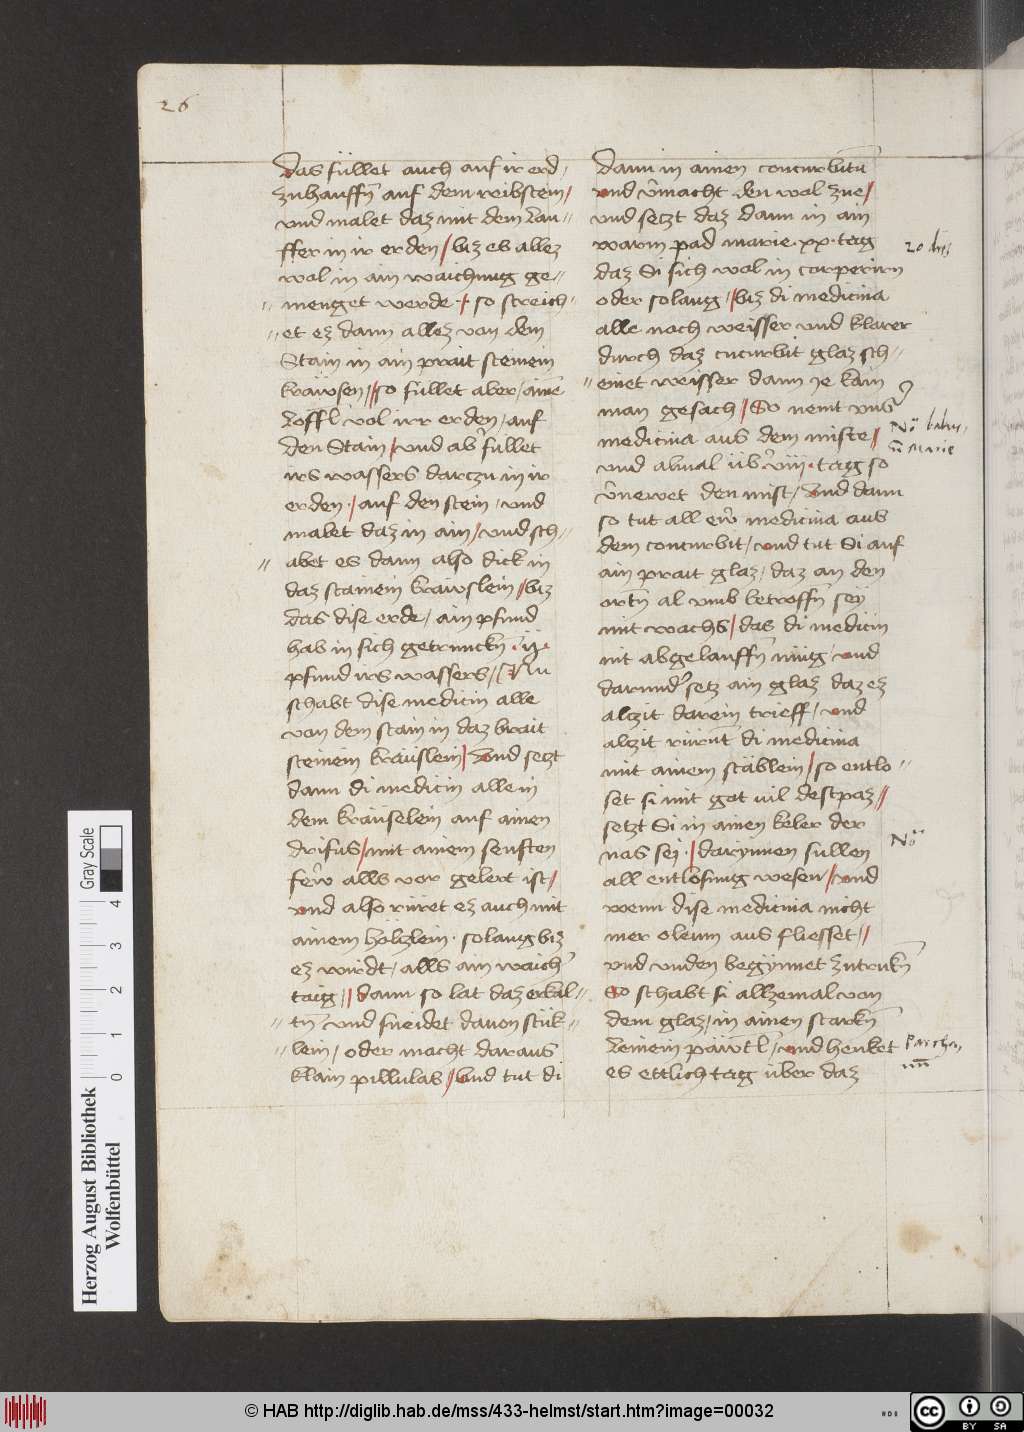 26
das füllet auch auf ir erd /
zuhauffn̄ auf dem reibstein /
vnd malet daz mit dem lau=
ffer in ir erden / biz es allez
wol in ain waichung ge=
menget werde / so streich=
et ez dann allez von dem
Stain in ain prait steinein
kräwsen // so füllet aber / ainē
löffl vol irr erden / auf
den Stain / vnd ab̉ füllet
irs wassers darczu in ir
erden / auf den stein / vnd
malet daz in ain / vnd sch=
abet es dann also dick in
daz stainein kräwslein / biz
das dise erde / ain pfund
hab in sich getrunckn̄ · ij ·
pfund irs wassers / Nu
schabt dise medicin alle
von dem stain in daz brait
steinein kräuslein / Vnd setzt
dann di medicin alle in
dem kräüselein auf ainen
drifus / mit ainem senften
fewr alls vor gelert ist /
vnd also rüret ez auch mit
ainem hölzlein · solang biz
ez wirdt / alls ain waich̉
taig // dann so lat daz erkal=
tn̄ vnd sneidet dauon stük=
lein / oder macht daraus
klain pillulas / Vnd tut di
dann in ainen concurbitū
vnd v̉macht den wol zue /
vnd setzt daz dann in ain
warm pad marie · xx · tag
daz Si sich wol in corperirn
oder solang / biz di medicina
alle noch weisser vnd klarer
durch daz cucurbit glaz sch=
einet weisser dann ye kain
man gesach / So nemt vns̉
medicina aus dem miste /
vnd almal üb̉ viij · tag so
v̉newet den mist / Vnd dann
so tut all ew̉ medicina aus
dem concurbit / vnd tut Si auf
ain prait glaz / daz an den
ortn̄ al vmb betroffn̄ seÿ
mit wachs / das di medicin
nit abgelauffn̄ müg / vnd
darund̉ setz ain glaz daz ez
alczit darein trieff / vnd
alczit rürnt di medicina
mit ainem stäblein / so entlo=
set si mit got vil destpaz //
setzt Si in ainen keler der
nas sei · / darynnen sullen
all entlosung wesen / vnd
wenn dise medicina nicht
mer oleum aus fliesset //
vnd vnden begynnet zutrukn̄
So schabt si allzemal von
dem glaz / in ainen starkn̄
leinein päwtl / vnd henket
es ettlich tag über daz
Nō
Gray Scale
0 1 2 3 4
Herzog August Bibliothek
Wolfenbüttel
© HAB http://diglib.hab.de/mss/433-helmst/start.htm?image=00032
HAB
cc BY SA